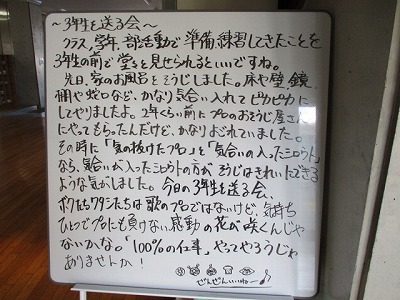 ～3年生を送る会～
クラス、学年、部活動で準備、練習してきたことを
3年生の前で堂々と見せられるといいですね。
先日、家のお風呂をそうじしました。床や壁、鏡、
棚や蛇口など、かなり気合い入れてピカピカに
してやりましたよ。2年くらい前にプロのおそうじ屋さん
にやってもらったんだけど、かなりよごれていました。
その時に「気の抜けたプロ」と「気合いの入ったシロウト」
なら、気合いが入ったシロウトの方がそうじはきれいにできる
ような気がしました。今日の3年生を送る会、
ボクたちワタシたちは歌のプロではないけど、気持ち
ひとつでプロにも負けない感動の花が咲くんじゃ
ないかな。「100%の仕事」やってやろうじゃ
ありませんか!
ぜんぜんいいねー♪